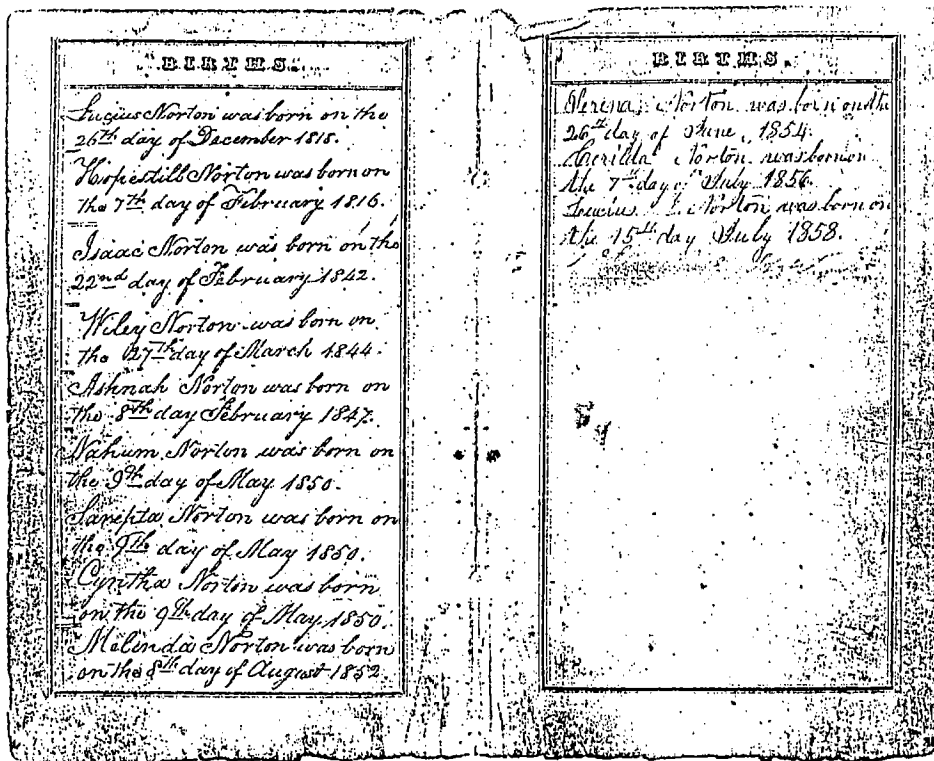 BIRTHS.
Lucius Norton was born on the
26th day of December 1818.
Hopestill Norton was born on
the 7th day of February 1816.
Isaac Norton was born on the
22nd day of February 1842.
Wiley Norton was born on
the 27th day of March 1844.
Ashnah Norton was born on
the 8th day February 1847.
Nahum Norton was born on
the 9th day of May 1850.
Sarepta Norton was born on
the 9th day of May 1850.
Cyntha Norton was born
on the 9th day of May 1850.
Melinda Norton was born
on the 8th day of August 1852
BIRTHS.
Norton was born on the
26th day of June, 1854.
Norton was born on
the 7th day of July 1856.
Lucius Norton was born on
the 15th day July 1858.